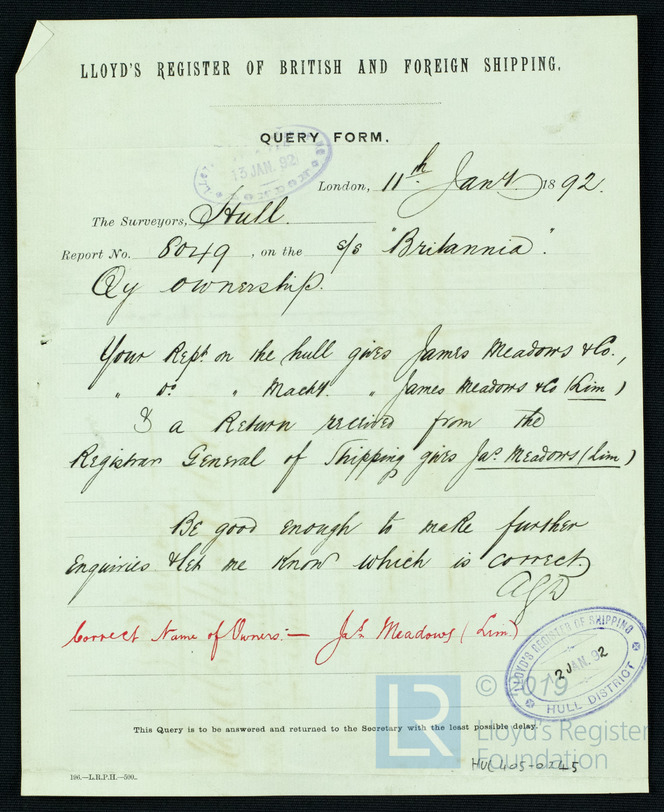 LLOYD'S REGISTER OF BRITISH AND FOREIGN SHIPPING.
QUERY FORM.
13 JAN. 92
London, 11th Jany 1892.
The Surveyors, Hull.
Report No. 8049, on the s/s "Britannia".
Qy ownership.
Your Rept on the hull gives James Meadows & Co.,
" Do " Machy. " James Meadows & Co (Lim)
& a Return received from the
Registrar General of Shipping gives Jas. Meadows (Lim)
Be good enough to make further
Enquiries & let me know which is correct.
Correct Name of Owners:— Jas. Meadows (Lim)
LLOYD'S REGISTER OF SHIPPING
2 JAN. 92
HULL DISTRICT
© 2019
LR
Lloyd's Register
Foundation
This Query is to be answered and returned to the Secretary with the least possible delay.
HUL405-0245
196.—L.R.P.H.—500.